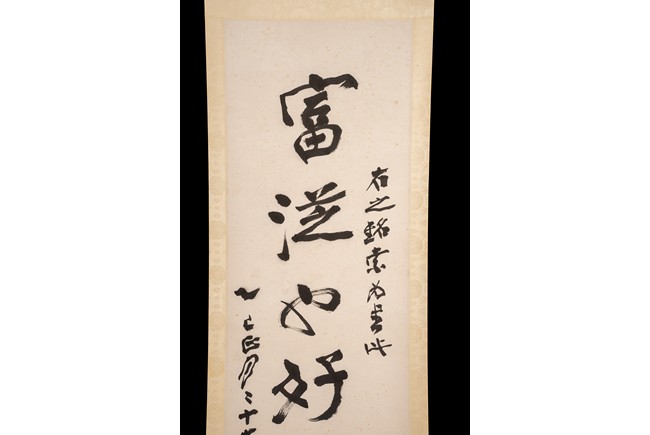 右之銘索為書此
富也好
乙巳正月二十